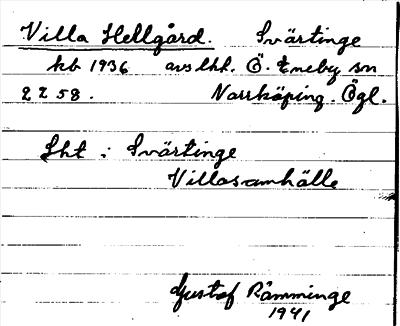 Villa Hellgård. Svärtinge
kb 1936 avs lht. Ö. Eneby sn
2258. Norrköping. Ögl.
Lht : Svärtinge
Villasamhälle
Gustaf Rämminge
1941